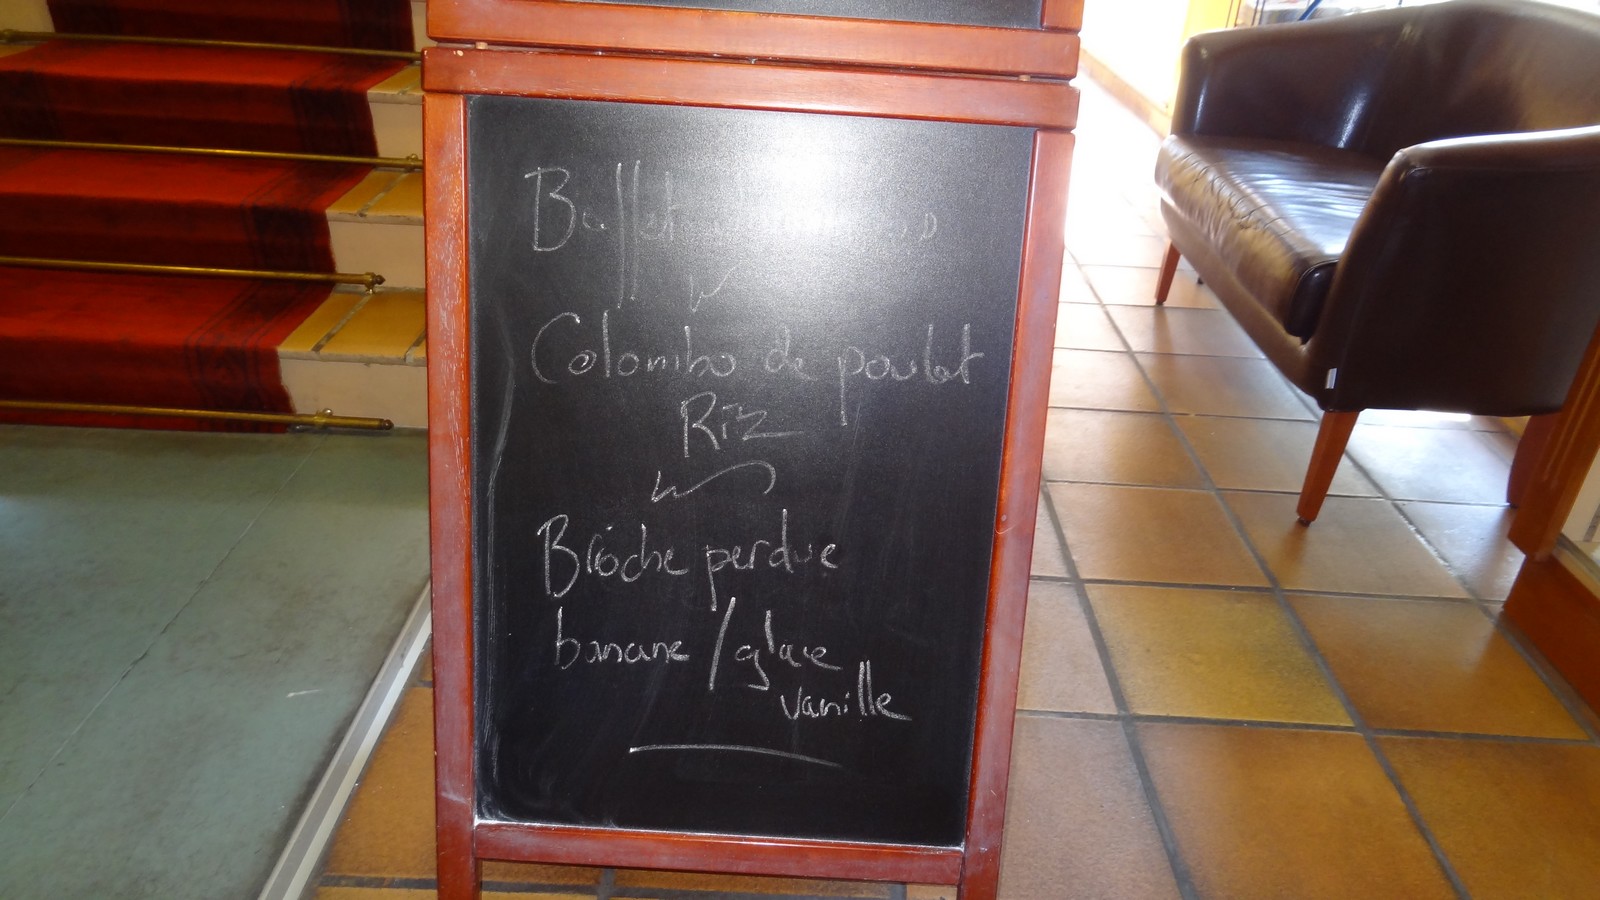 Colombo de poulet
Riz
Brioche perdue
banane / glace
vanille